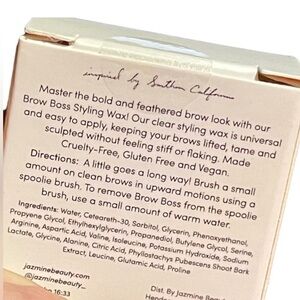 inspired by Southern California
Master the bold and feathered brow look with our
Brow Boss Styling Wax! Our clear styling wax is universal
and easy to apply, keeping your brows lifted, tame and
sculpted without feeling stiff or flaking. Made
Cruelty-Free, Gluten Free and Vegan.
Directions: A little goes a long way! Brush a small
amount on clean brows in upward motions using a
spoolie brush. To remove Brow Boss from the spoolie
brush, use a small amount of warm water.
Ingredients: Water, Ceteareth-30, Sorbitol, Glycerin, Phenoxyethanol,
Propylene Glycol, Ethylhexylglycerin, Propanediol, Butylene Glycol, Serine,
Arginine, Aspartic Acid, Valine, Isoleucine, Potassium Hydroxide, Sodium
Lactate, Glycine, Alanine, Citric Acid, Phyllostachys Pubescens Shoot Bark
Extract, Leucine, Glutamic Acid, Proline
jazminebeauty.com
@jazminebeauty_
16:33
Dist. By Jazmine Beauty